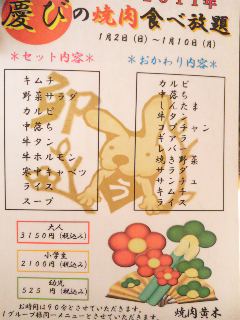 2011年
慶びの焼肉食べ放題
1月2日(日)～1月10日(月)
＊セット内容＊
キムチ
野菜サラダ
カルビ
中落ち
牛タン
牛ホルモン
寒中キャベツ
ライス
スープ
＊おかわり内容＊
カルビ
中落ち
しんたま
牛タン
コプチャン
ギアラ
レバー
焼き野菜
サラダ
キムチ
ライス
大人
3150円(税込み)
小学生
2100円(税込み)
幼児
525円(税込み)
お時間は90分とさせていただきます。
1グループ様同一メニューとさせていただきます。
焼肉黄木